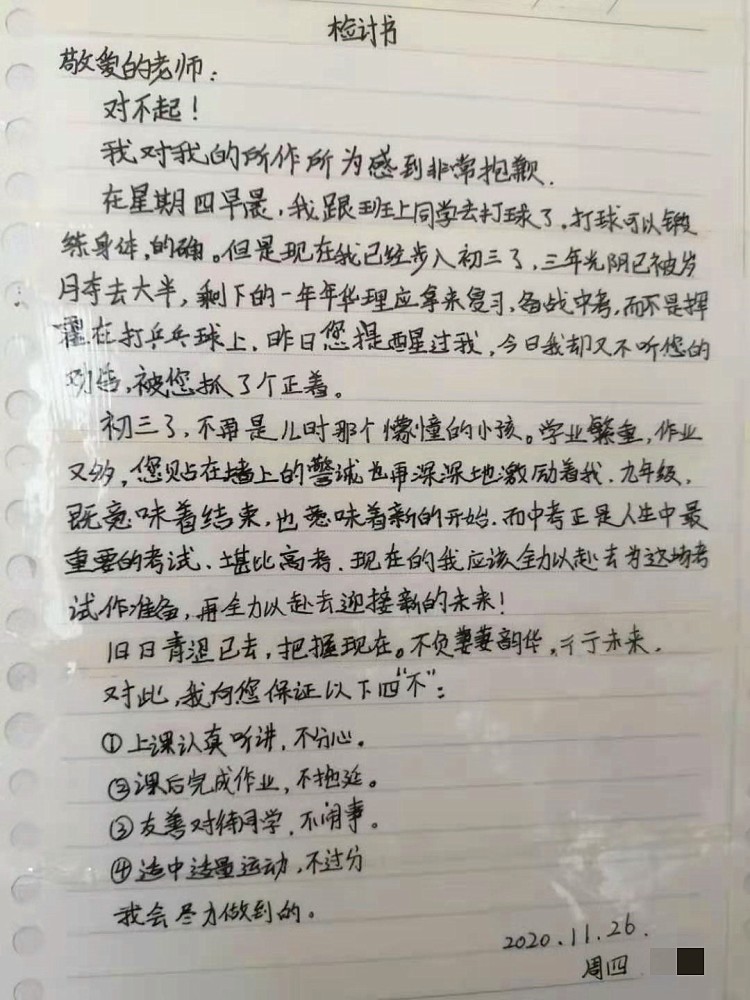 检讨书
敬爱的老师：
对不起！
我对我的所作所为感到非常抱歉.
在星期四早晨，我跟班上同学去打球了，打球可以锻
练身体，的确。但是现在我已经步入初三了，三年光阴已被岁
月夺去大半，剩下的一年年华理应拿来复习、备战中考，而不是挥
霍在打乒乓球上，昨日您提醒过我，今日我却又不听您的
劝告，被您抓了个正着。
初三了，不再是儿时那个懵懂的小孩。学业繁重，作业
又多，您贴在墙上的警诫也再深深地激励着我.九年级，
既意味着结束，也意味着新的开始.而中考正是人生中最
重要的考试、堪比高考.现在的我应该全力以赴去为这场考
试作准备，再全力以赴去迎接新的未来！
旧日青涩已去，把握现在。不负萋萋韶华，于未来.
对此，我向您保证以下四"不"：
①上课认真听讲，不分心。
②课后完成作业，不拖延。
③友善对待同学，不闹事。
④适中适量运动，不过分
我会尽力做到的。
2020.11.26.
周四